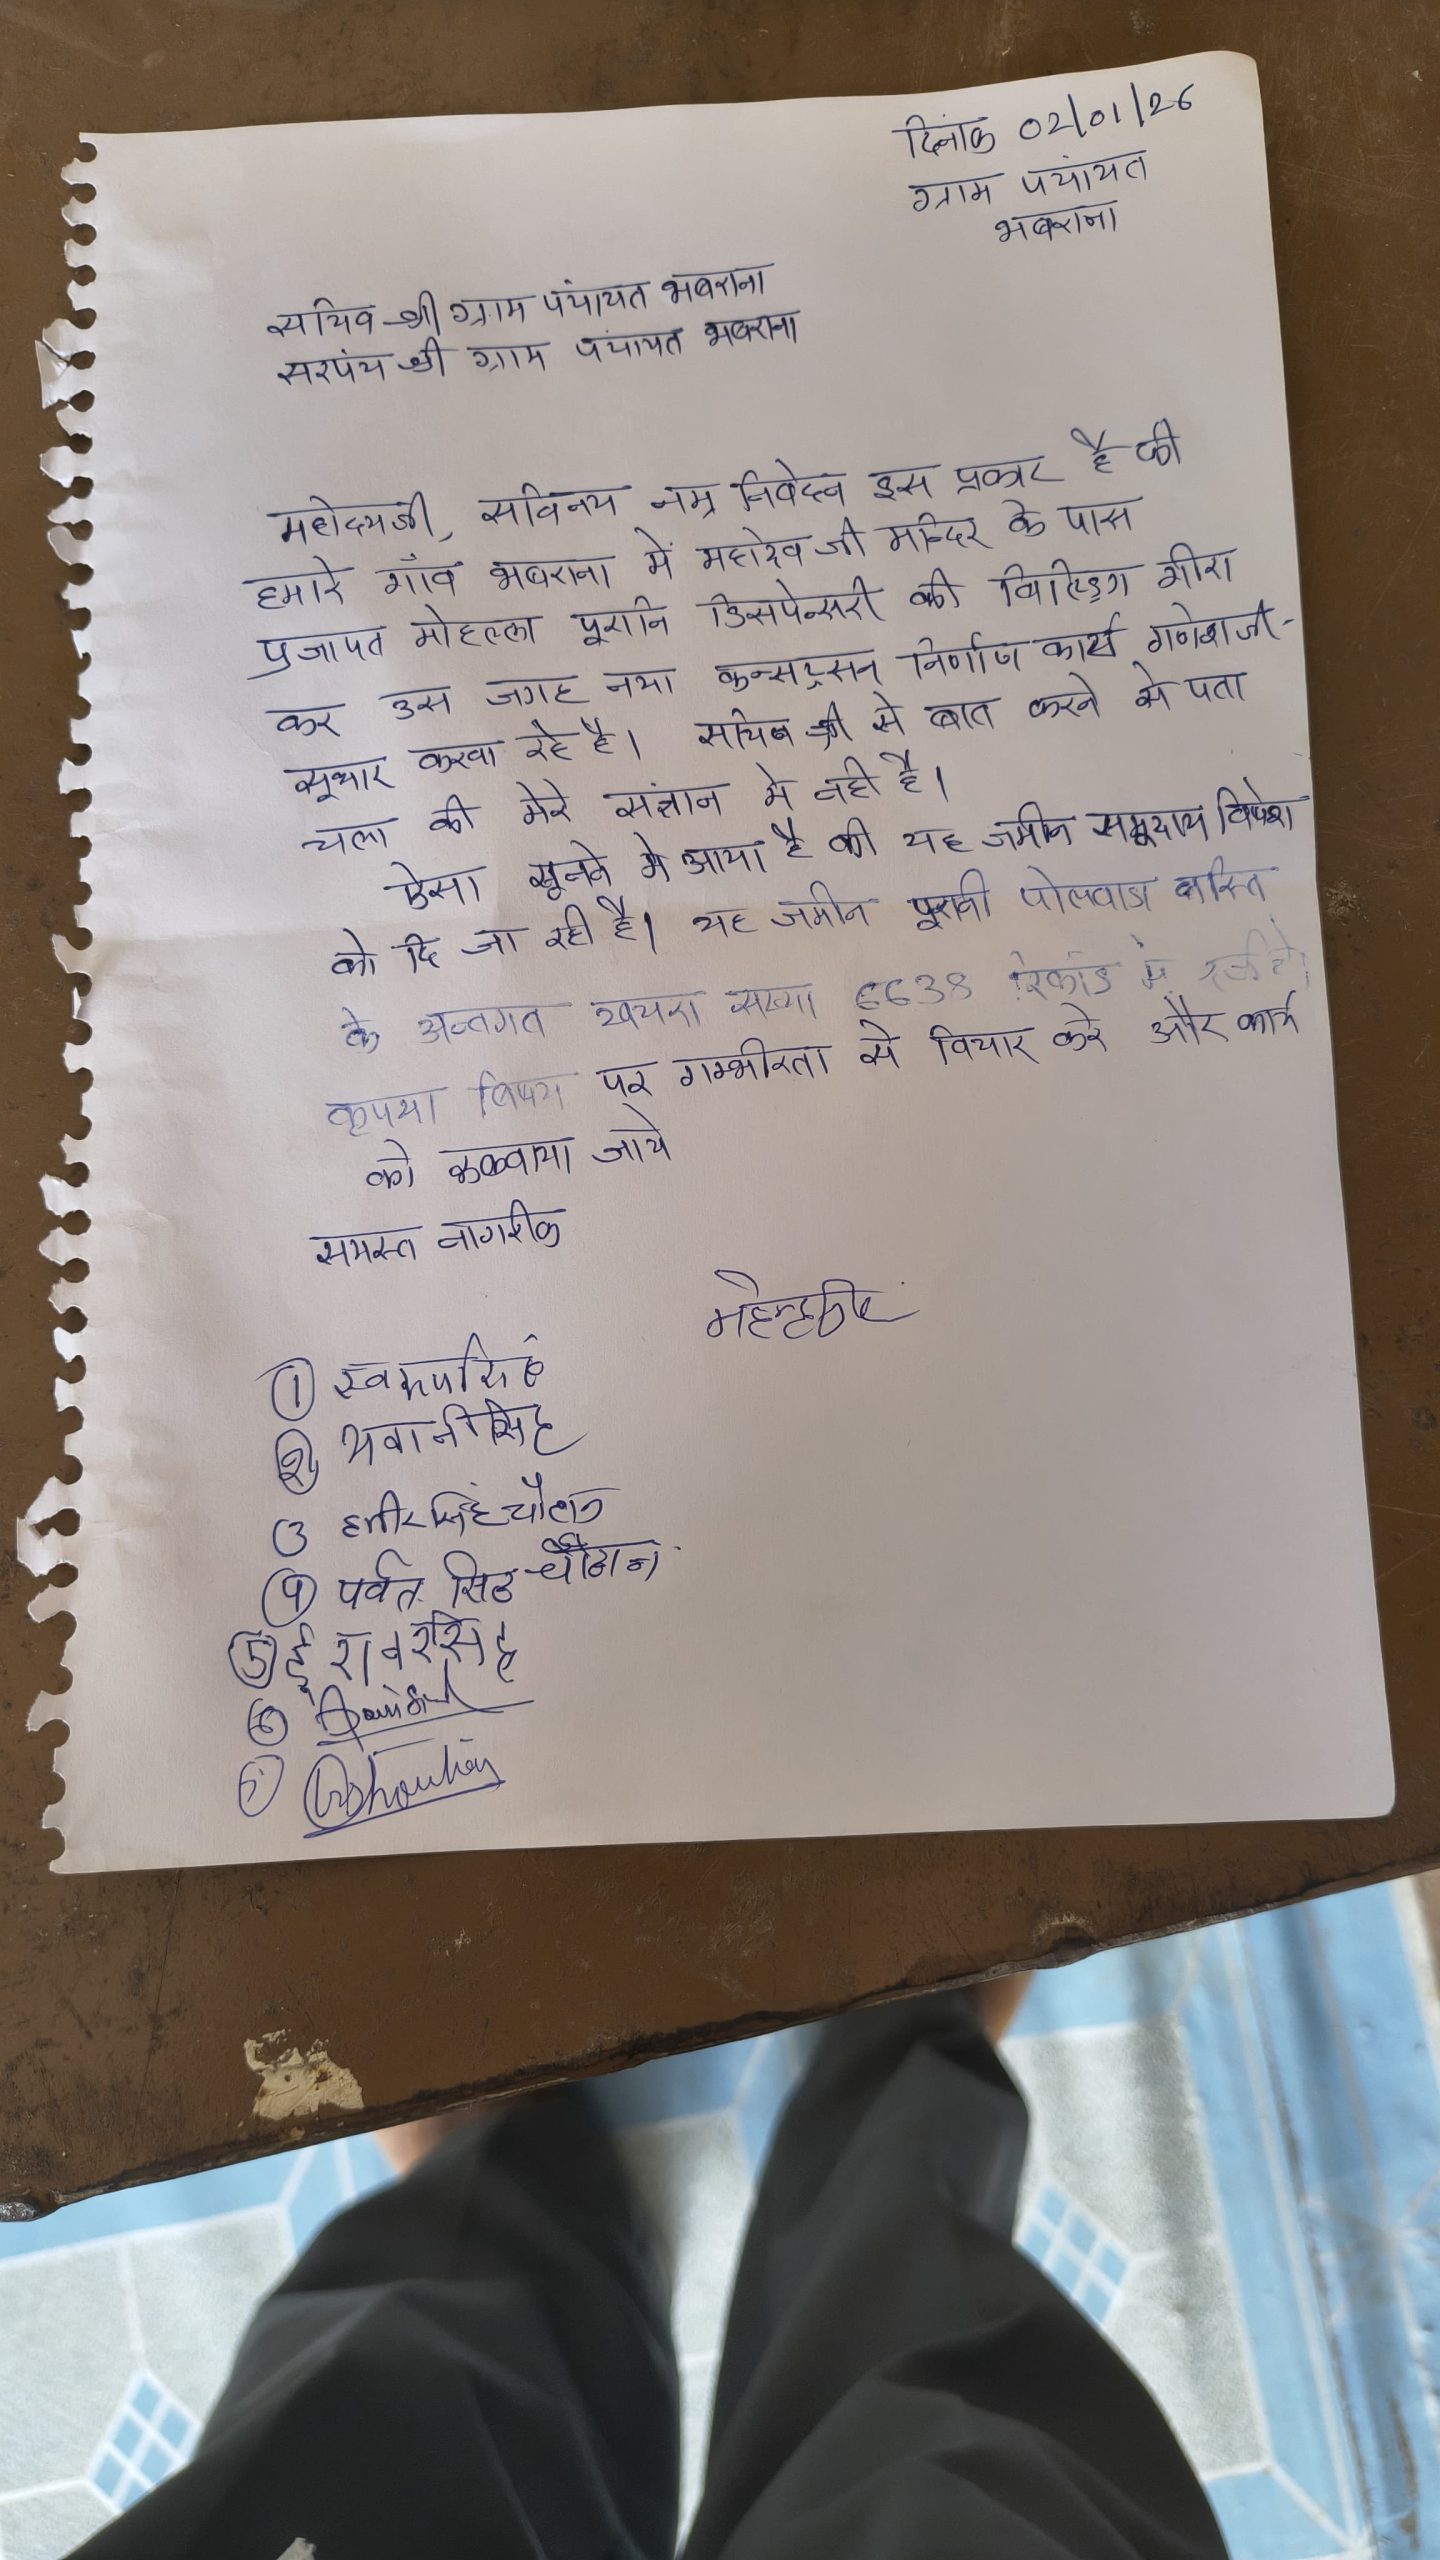 दिनांक 02/01/26
ग्राम पचांयत
भबराना
सचिव श्री ग्राम पंचायत भबराना
सरपंच श्री ग्राम पंचायत भबराना
महोदयजी, सविनय नम्र निवेदन इस प्रकार है की
हमारे गाँव भबराना में महादेव जी मन्दिर के पास
प्रजापत मोहल्ला पूरानि डिसपेन्सरी की बिल्डिग गीरा
कर उस जगह नया कन्सट्रसन निर्माण कार्य गणेशजी-
सूथार करवा रहे है। सचिव श्री से बात करने से पता
चला की मेरे संज्ञान मे नही है।
ऐसा सूनने मे आया है की यह जमीन समूदाय विषेश
को दि जा रही है। यह जमीन पूरानी पोलवाडा बस्ति
के अन्तगत खसरा सख्या 6638 रिकॉड में दर्ज है।
कृपया विषय पर गम्भीरता से विचार करे और कार्य
को रूकवाया जाये
समस्त नागरीक
① स्वरूपसिंह
② भवानीसिंह
3 हमीरसिंह चौहान
④ पर्वत सिंह चौहान
⑤ ईश्वरसिंह
⑥